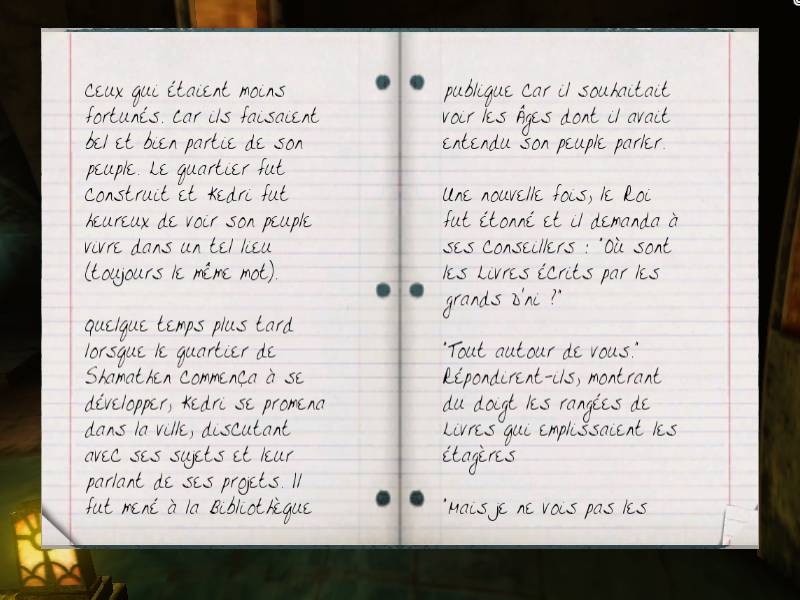 ceux qui étaient moins
fortunés. Car ils faisaient
bel et bien partie de son
peuple. Le quartier fut
construit et Kedri fut
heureux de voir son peuple
vivre dans un tel lieu
(toujours le même mot).
Quelque temps plus tard
lorsque le quartier de
Shamathen commença à se
développer, Kedri se promena
dans la ville, discutant
avec ses sujets et leur
parlant de ses projets. Il
fut mené à la Bibliothèque
publique car il souhaitait
voir les Âges dont il avait
entendu son peuple parler.
Une nouvelle fois, le Roi
fut étonné et il demanda à
ses conseillers : "Où sont
les Livres écrits par les
grands D'ni ?"
"Tout autour de vous."
Répondirent-ils, montrant
du doigt les rangées de
Livres qui emplissaient les
étagères
"Mais je ne vois pas les